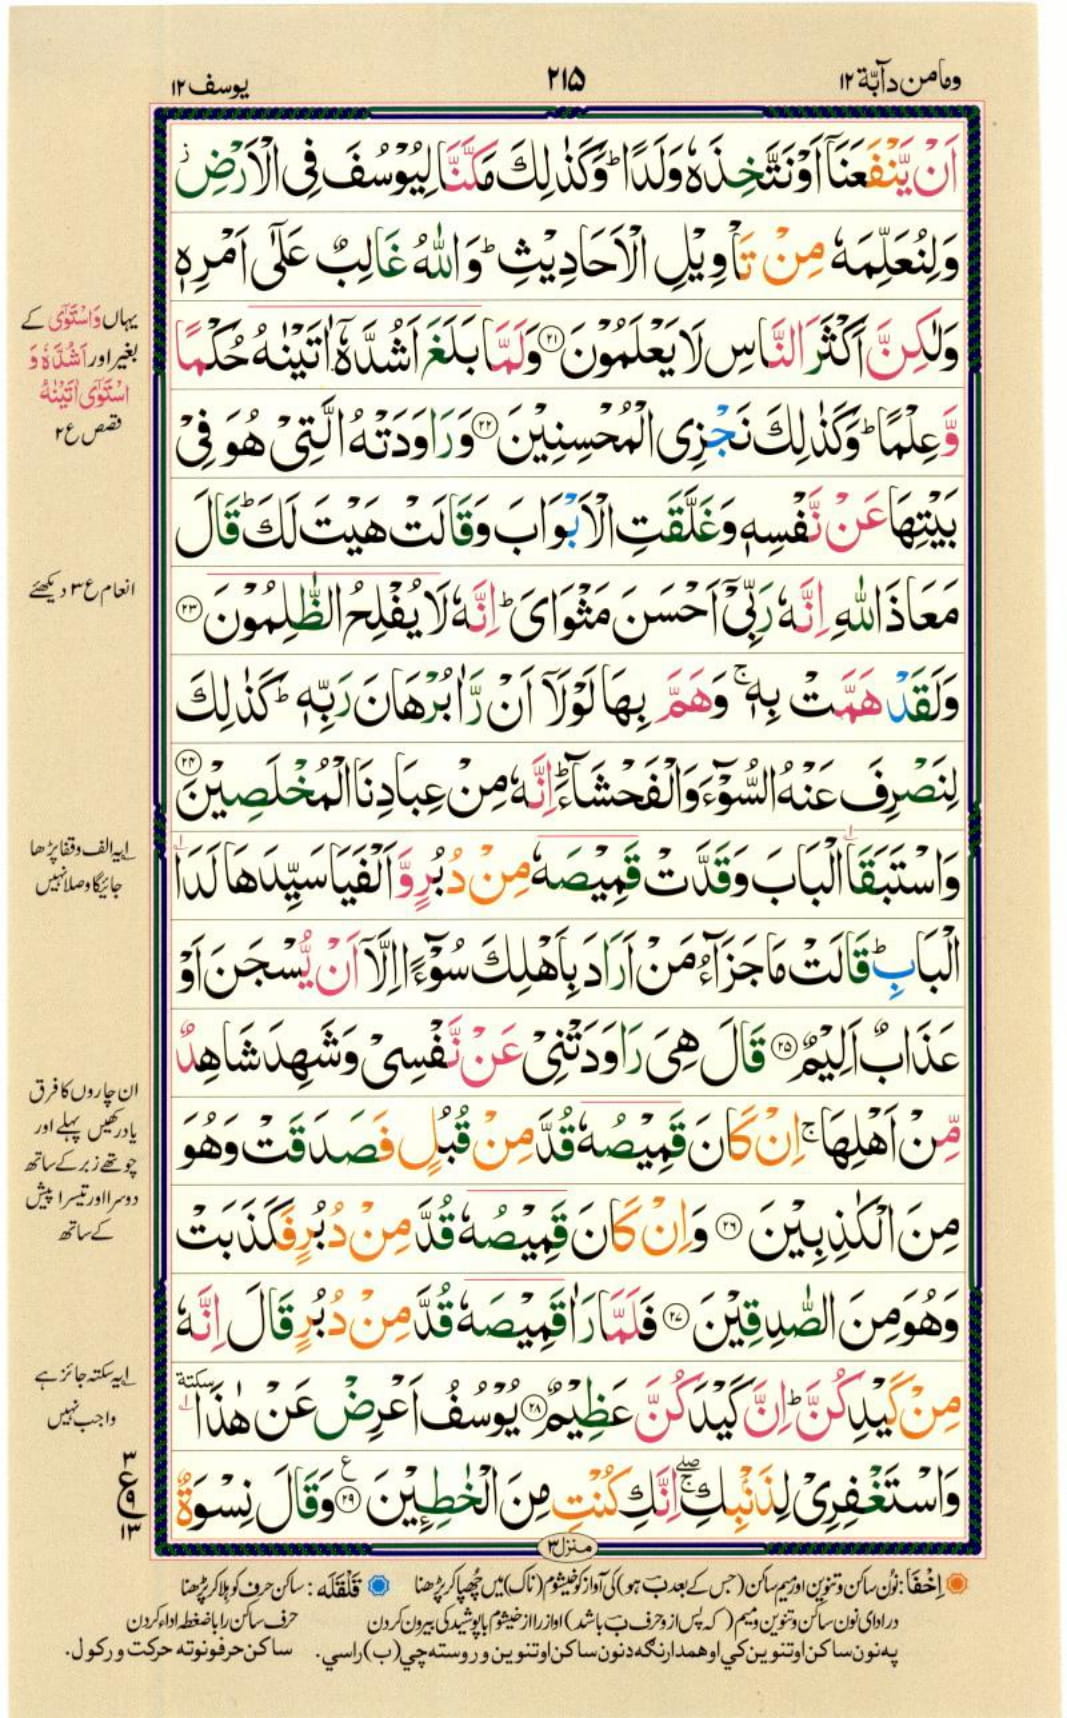 وما من دآبّة ۱۲
۲۱۵
يوسف ۱۲
اَنْ يَّنْفَعَنَاۤ اَوْ نَتَّخِذَهٗ وَلَدًا ؕ وَكَذٰلِكَ مَكَّنَّا لِيُوْسُفَ فِى الْاَرْضِ ز
وَلِنُعَلِّمَهٗ مِنْ تَاْوِيْلِ الْاَحَادِيْثِ ؕ وَاللّٰهُ غَالِبٌ عَلٰٓى اَمْرِهٖ
وَلٰكِنَّ اَكْثَرَ النَّاسِ لَا يَعْلَمُوْنَ ۲۱ وَلَمَّا بَلَغَ اَشُدَّهٗۤ اٰتَيْنٰهُ حُكْمًا
وَّعِلْمًا ؕ وَكَذٰلِكَ نَجْزِى الْمُحْسِنِيْنَ ۲۲ وَرَاوَدَتْهُ الَّتِىْ هُوَ فِىْ
بَيْتِهَا عَنْ نَّفْسِهٖ وَغَلَّقَتِ الْاَبْوَابَ وَقَالَتْ هَيْتَ لَكَ ؕ قَالَ
مَعَاذَ اللّٰهِ اِنَّهٗ رَبِّىْۤ اَحْسَنَ مَثْوَاىَ ؕ اِنَّهٗ لَا يُفْلِحُ الظّٰلِمُوْنَ ۲۳
وَلَقَدْ هَمَّتْ بِهٖ ۚ وَهَمَّ بِهَا لَوْلَاۤ اَنْ رَّاٰ بُرْهَانَ رَبِّهٖ ؕ كَذٰلِكَ
لِنَصْرِفَ عَنْهُ السُّوْٓءَ وَالْفَحْشَآءَ ؕ اِنَّهٗ مِنْ عِبَادِنَا الْمُخْلَصِيْنَ ۲۴
وَاسْتَبَقَا الْبَابَ وَقَدَّتْ قَمِيْصَهٗ مِنْ دُبُرٍ وَّاَلْفَيَا سَيِّدَهَا لَدَا
الْبَابِ ؕ قَالَتْ مَا جَزَآءُ مَنْ اَرَادَ بِاَهْلِكَ سُوْٓءًا اِلَّاۤ اَنْ يُّسْجَنَ اَوْ
عَذَابٌ اَلِيْمٌ ۲۵ قَالَ هِىَ رَاوَدَتْنِىْ عَنْ نَّفْسِىْ وَشَهِدَ شَاهِدٌ
مِّنْ اَهْلِهَا ۚ اِنْ كَانَ قَمِيْصُهٗ قُدَّ مِنْ قُبُلٍ فَصَدَقَتْ وَهُوَ
مِنَ الْكٰذِبِيْنَ ۲۶ وَاِنْ كَانَ قَمِيْصُهٗ قُدَّ مِنْ دُبُرٍ فَكَذَبَتْ
وَهُوَ مِنَ الصّٰدِقِيْنَ ۲۷ فَلَمَّا رَاٰ قَمِيْصَهٗ قُدَّ مِنْ دُبُرٍ قَالَ اِنَّهٗ
مِنْ كَيْدِكُنَّ ؕ اِنَّ كَيْدَكُنَّ عَظِيْمٌ ۲۸ يُوْسُفُ اَعْرِضْ عَنْ هٰذَا سكتة
وَاسْتَغْفِرِىْ لِذَنْۢبِكِ ۖۚ اِنَّكِ كُنْتِ مِنَ الْخٰطِـِٕيْنَ ۲۹ ع وَقَالَ نِسْوَةٌ
یہاں وَاسْتَوٰٓی کے
بغیر اور اَشُدَّهٗ وَ
اسْتَوٰٓی اٰتَيْنٰهُ
قصص ع ۲
انعام ع ۳ دیکھئے
۱ یہ الف وقفا پڑھا
جائیگا وصلا نہیں
ان چاروں کا فرق
یاد رکھیں پہلے اور
چوتھے زبر کے ساتھ
دوسرا اور تیسرا پیش
کے ساتھ
۱ یہ سکتہ جائز ہے
واجب نہیں
۳
ع ۹
۱۳
منزل ۳
اِخْفَا: نُون ساکن و تنوین اور میم ساکن (جس کے بعد بَ ہو) کی آواز کو خیشوم (ناک) میں چُھپا کر پڑھنا
قَلْقَلَه: ساکن حرف کو ہلا کر پڑھنا
در ادای نون ساکن و تنوین و میم (که پس از و حرف بَ باشد) اواز را از خیشوم با پوشیدگی بیرون کردن
حرف ساکن را با ضغطه اداء کردن
په نون ساکن او تنوین کي او همدارنگه د نون ساکن او تنوین وروسته چي (ب) راسي.
ساکن حرفو نو ته حرکت ورکول.